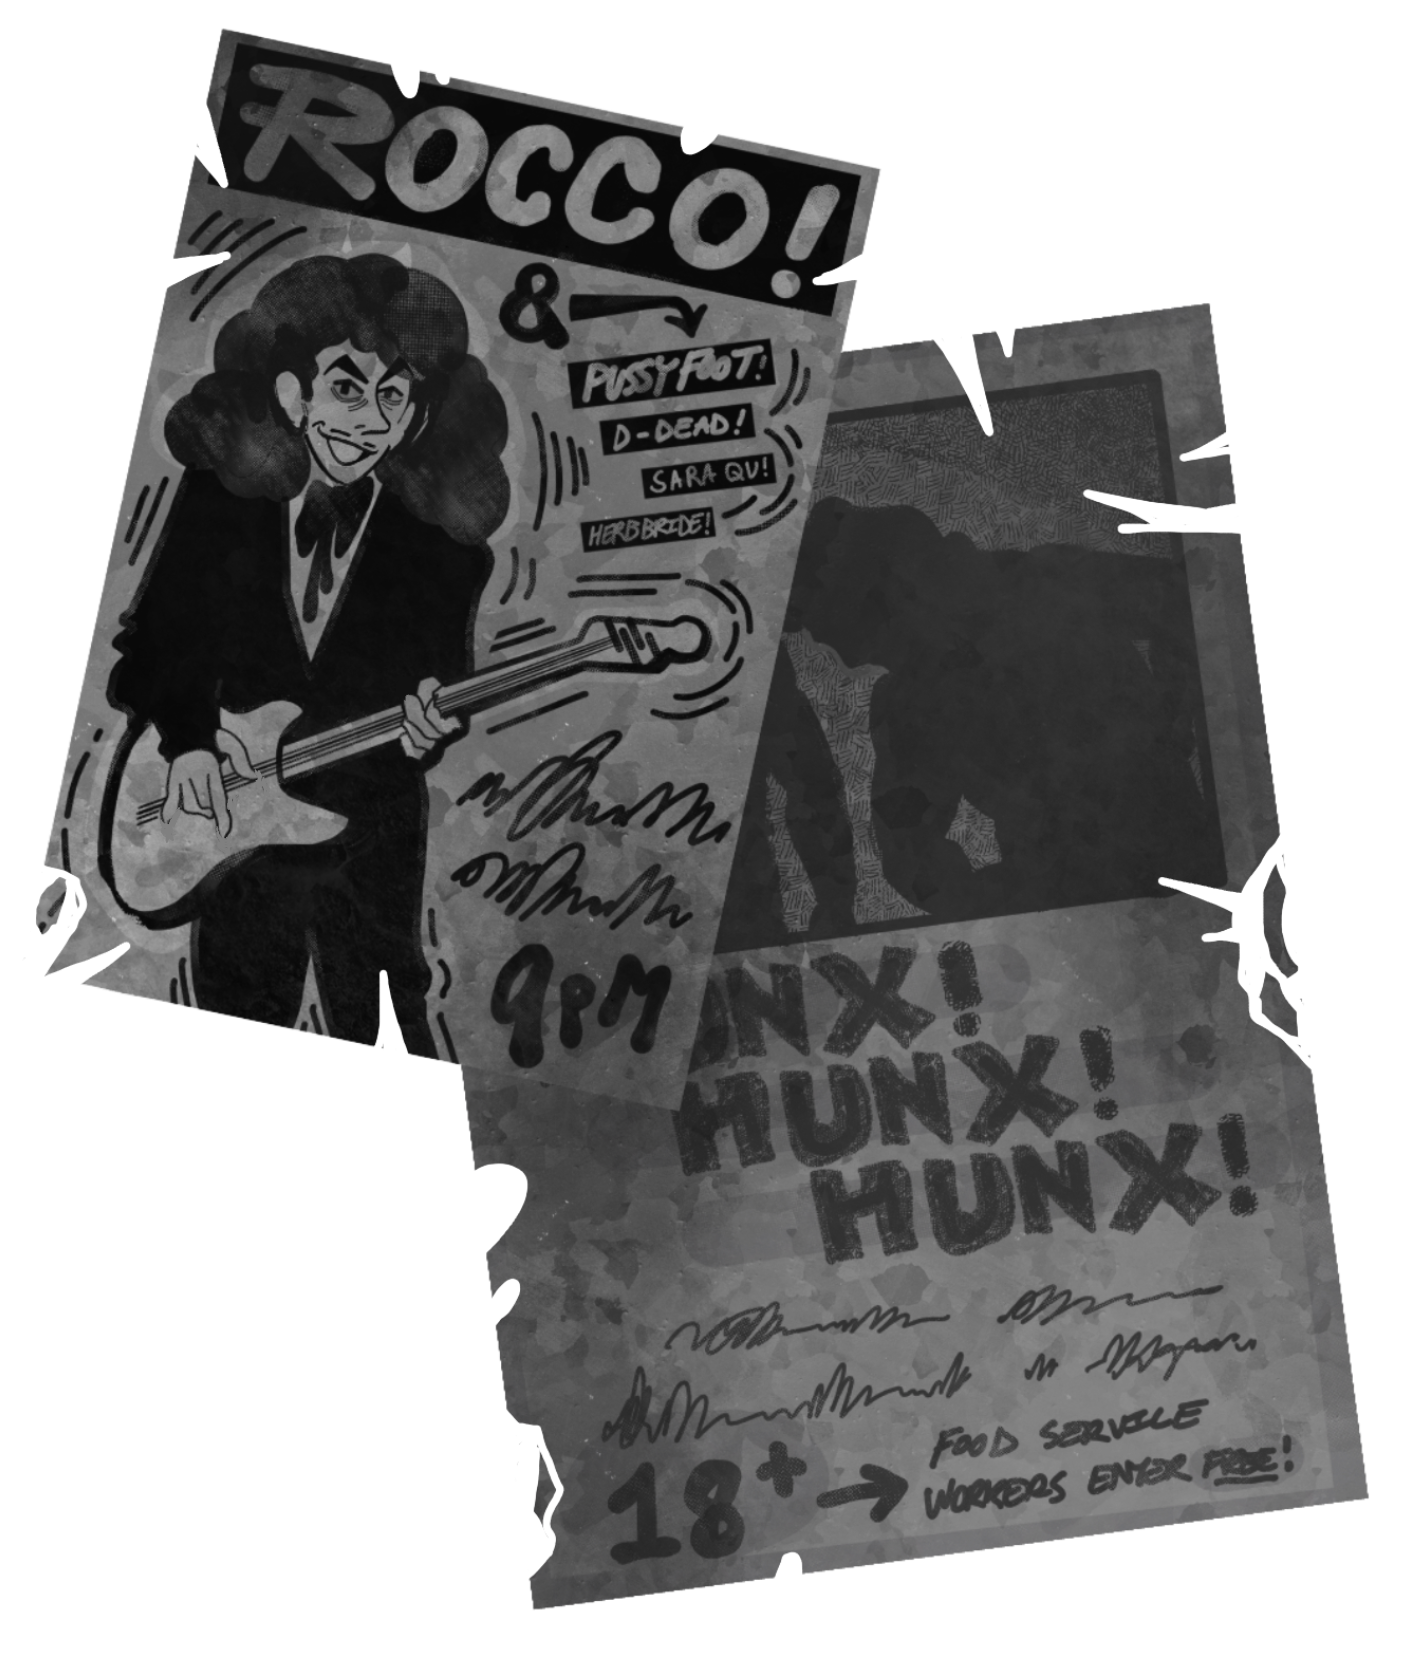 ROCCO!
&
PUSSYFOOT!
D-DEAD!
SARA QU!
HERBBRIDE!
9PM
UNX!
HUNX!
HUNX!
18+ → FOOD SERVICE
WORKERS ENTER FREE!